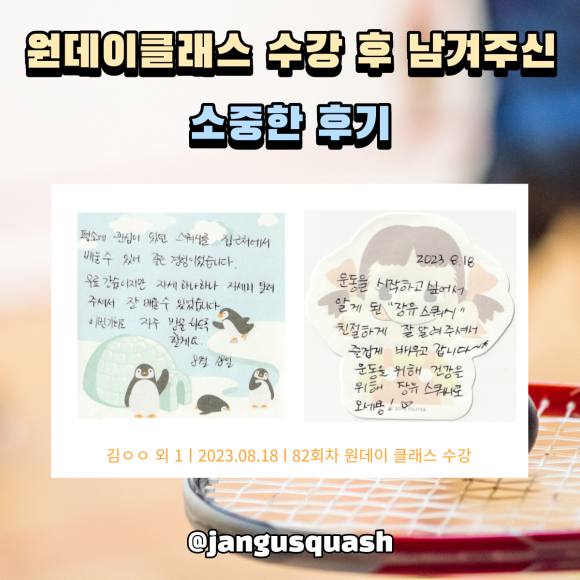 원데이클래스 수강 후 남겨주신
소중한 후기
평소에 관심이 있던 스쿼시를 집근처에서
배울수 있어 좋은 경험이었습니다.
무료 강습이지만 자세 하나하나 자세히 알려
주셔서 잘 배울수 있었습니다.
이번기회로 자주 방문 하도록
할게요
8월 18일
2023 8.18
운동을 시작하고 싶어서
알게 된 "장유 스쿼시"
친절하게 잘 알려주셔서
즐겁게 배우고 갑니다~^
운동을 위해 건강을
위해 장유 스쿼시로
오세용! ♡
김ㅇㅇ 외 1 l 2023.08.18 l 82회차 원데이 클래스 수강
@jangusquash